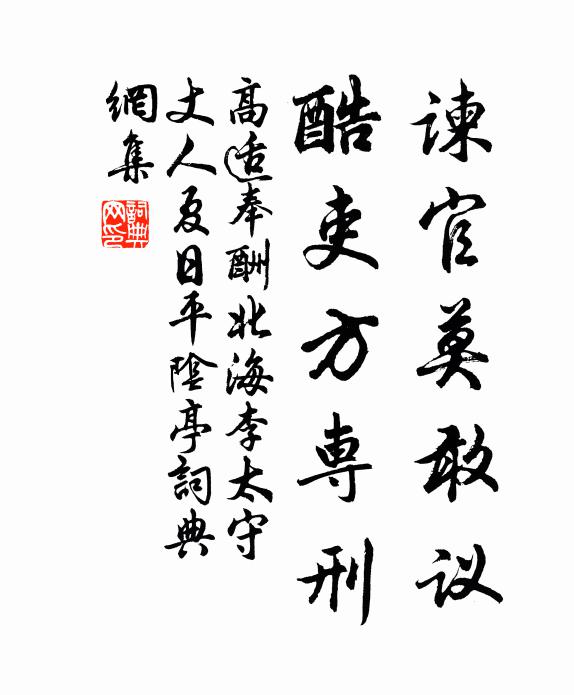 谏官莫敢议
酷吏方専刑
高适奉酬北海李太守
丈人夏日平陰亭詞典
網集
詞典网印